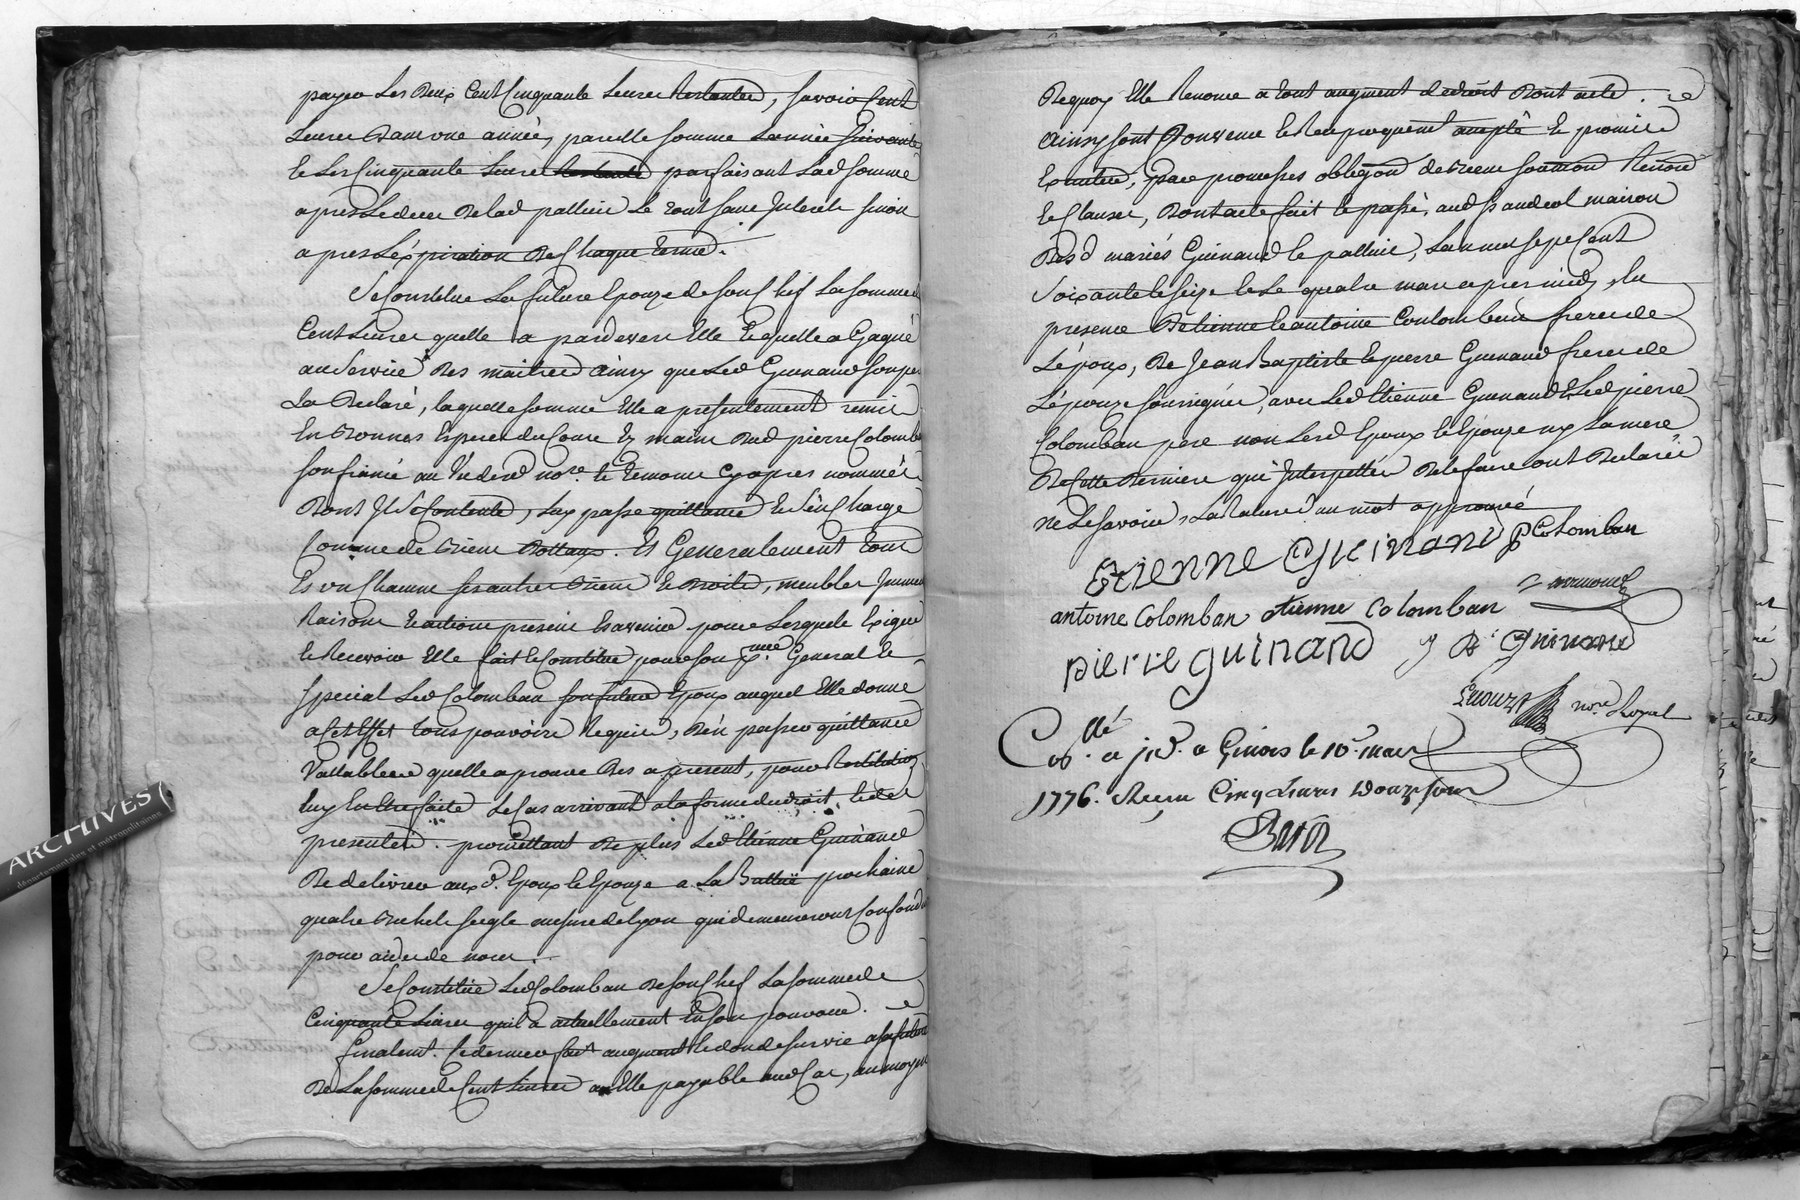 payer Les Deux Cent Cinquante Livres Restantes, savoir Cent
Livres Dans une année, pareille somme L'année suivante
et Les Cinquante Livres parfaisant Lad somme
apres Le deces De lad pallière Le tout sans Interets sinon
apres L'éxpiration De Chaque terme.
Se Constitue La future Epouze de son Chef La somme de
Cent Livres quelle a pardevers Elle et quelle a Gagné
au service Des maitres ainsy que Led Guinand son pere
La Declaré, laquelle somme Elle a presentement remis
En Bonnes Especes du Cours Es mains Dud pierre Colomban
son fiancé au Vu desd no.re et temoins Cyapres nommés
Dont Il se Contente, Luy passe quittance et s'en Charge
Comme de Biens Dottaux. Et Generalement tous
Et un Chacuns ses autres Biens et Droits, meubles Immeubles
Raisons et actions presens et avenir pour Lesquels Exiger
et Recevoir Elle fait et Constitue pour son General et
special Led Colomban son futur Epoux auquel Elle donne
a Cet Effet tous pouvoirs Requis, D'en passer quittance
Vallables quelle aprouve Dès apresent, pour Restitution
luy En Etre faite Le Cas arrivant a la forme du droit et des
presentes. promettant De plus Led Etienne Guinand
De delivrer aux d. Epoux et Epouze a La prochaine
quatre Bichets seigle mesure de Lyon qui demeureront Confondus
pour aider de noces.
Se Constitue Led Colomban De son Chef La somme de
Cinquante Livres qu'il a actuellement En son pouvoir.
finalem.t Ce dernier fait augment et don de survie a sa future
De La somme de Cent Livres a Elle payable aud Cas, au moyen
Dequoy Elle Renonce a tout augment de droit Dont acte.
Ainsy sont Convenu et Reciproquement accepté Et promis
Executer, par promesses obligaon de Biens soumon Renoncon
et Clauses, Dont acte fait et passé, aud s.t andeol maison
Desd mariés Guinand et pallière, L'an mil sept Cent
soixante et seize et Le quatre mars apres midy, En
presence D'etienne et antoine Coulomban freres de
L'époux, De Jean Baptiste et pierre Guinand freres de
L'épouze soussignés, avec Led Etienne Guinand et Led pierre
Colomban pere non Lesd Epoux et Epouze ny La mere
De Cette Derniere qui Interpellés De le faire ont Declarés
ne Le savoir, La Rature d'un mot approuvé
ETIENNE GUINAND P Colomban
antoine Colomban etienne Colomban
pierre guinand J B.te guinand
no.re Royal
Con.llé et js.é a Givors le 10.e mars
1776. Recu Cinq Livres Douze sous